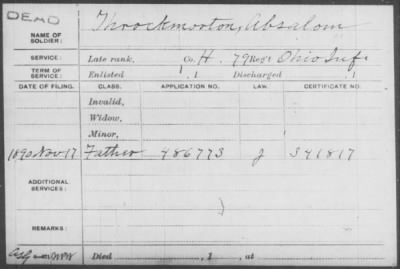 DEAD
NAME OF SOLDIER: Throckmorton, Absalom
SERVICE: Late rank, Co. H. 79 Reg't Ohio Inf.
TERM OF SERVICE: Enlisted , 1 Discharged , 1
DATE OF FILING. CLASS. APPLICATION NO. LAW. CERTIFICATE NO.
Invalid,
Widow,
Minor,
1890 Nov 17 Father 486773 J 341817
ADDITIONAL SERVICES:
REMARKS:
Died , 1 , at